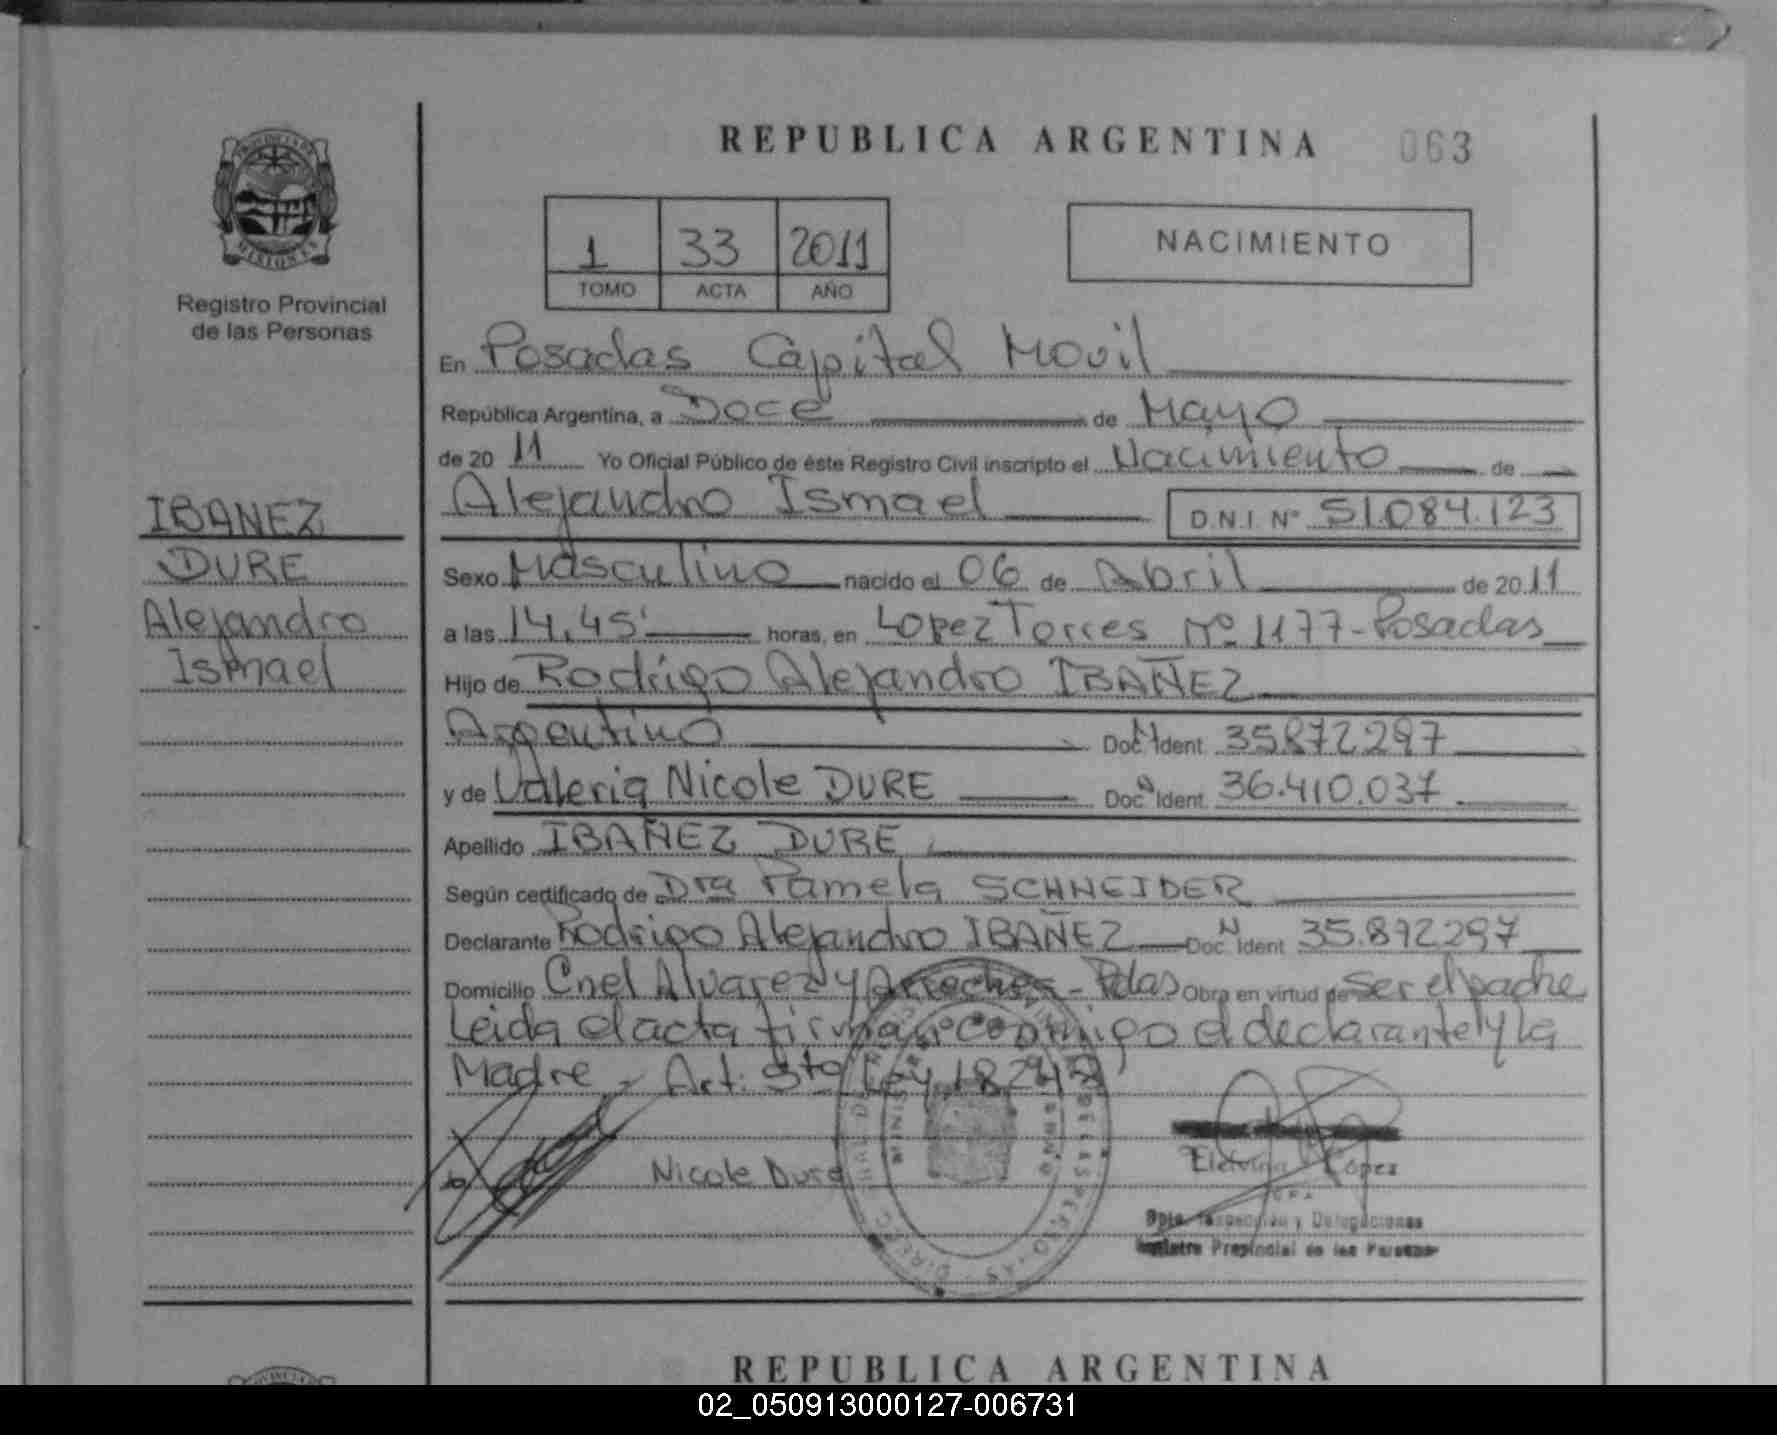 REPUBLICA ARGENTINA 063
PROVINCIA DE
MISIONES
Registro Provincial
de las Personas
1 33 2011
TOMO ACTA AÑO
NACIMIENTO
En Posadas Capital Movil
República Argentina, a Doce de Mayo
de 20 11 Yo Oficial Público de éste Registro Civil inscripto el Nacimiento de
Alejandro Ismael D.N.I. Nº 51.084.123
IBAÑEZ
DURE
Alejandro
Ismael
Sexo Masculino nacido el 06 de Abril de 20 11
a las 14,45' horas, en Lopez Torres Nº 1177-Posadas
Hijo de Rodrigo Alejandro IBAÑEZ
Argentino Doc. N Ident. 35872297
y de Valeria Nicole DURE Doc. N Ident. 36.410.037
Apellido IBAÑEZ DURE
Según certificado de Dra Pamela SCHNEIDER
Declarante Rodrigo Alejandro IBAÑEZ Doc. N Ident 35.872297
Domicilio Cnel Alvarez y Arrechea - Pdas Obra en virtud de Ser el padre
Leida el acta firman conmigo el declarante y la
Madre - Art. 5to Ley 18248
Nicole Dure
López
Dpto. Inspección y Delegaciones
Registro Provincial de las Personas
REPUBLICA ARGENTINA
02_050913000127-006731